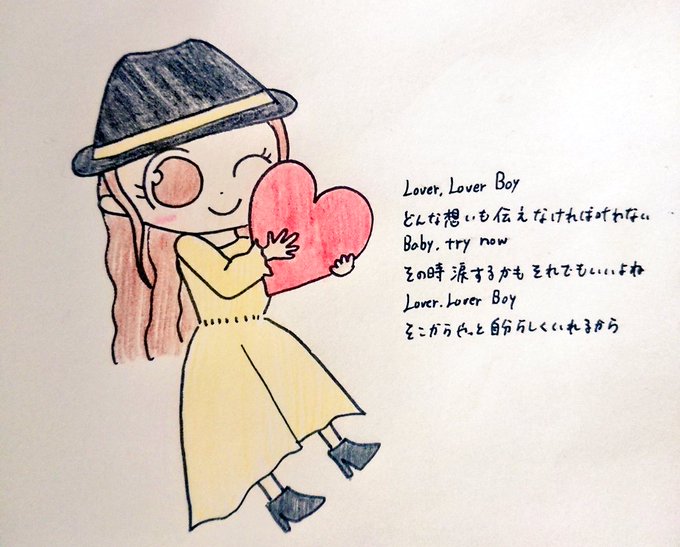 Lover, Lover Boy
どんな想いも伝えなければ叶わない
Baby, try now
その時涙するかも それでもいいよね
Lover, Lover Boy
そこからやっと自分らしくいれるから